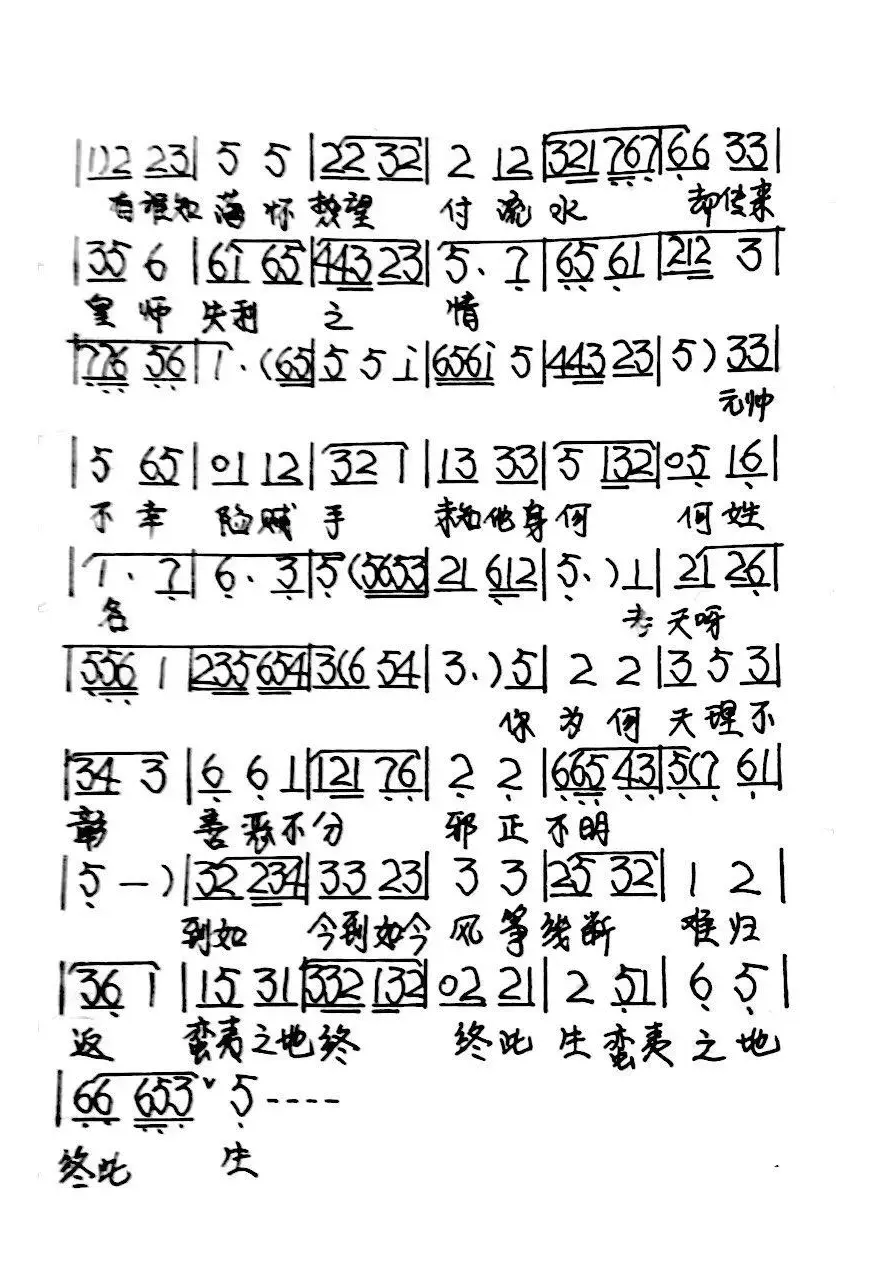 |1)2 23|5 5|22 32|2 12|321 767|66 33|
有谁知 满怀 热望 付流水 却传来
|35 6|61 65|443 23|5. 7|65 61|212 3|
皇师失利之情
|776 56|1.(65|5 5 i|656i 5|443 23|5) 33|
元帅
|5 65|01 12|32 1|13 33|5 132|05 16|
不幸陷贼手 未知他身何 何姓
|1. 7|6. 3|5(5653|21 612|5.) 1|21 26|
名 天呀
|556 1|235 654|3(6 54|3.) 5|2 2|3 5 3|
你为何天理不
|34 3|6 6 1|121 76|2 2|665 43|5(7 61|
彰 善恶不分 邪正不明
|5 —)|32 234|33 23|3 3|25 32|1 2|
到如今到如今风筝线断 难归
|36 1|15 31|332 132|02 21|2 51|6 5|
返 蛮夷之地终 终此生蛮夷之地
|66 653ˇ5----
终此 生